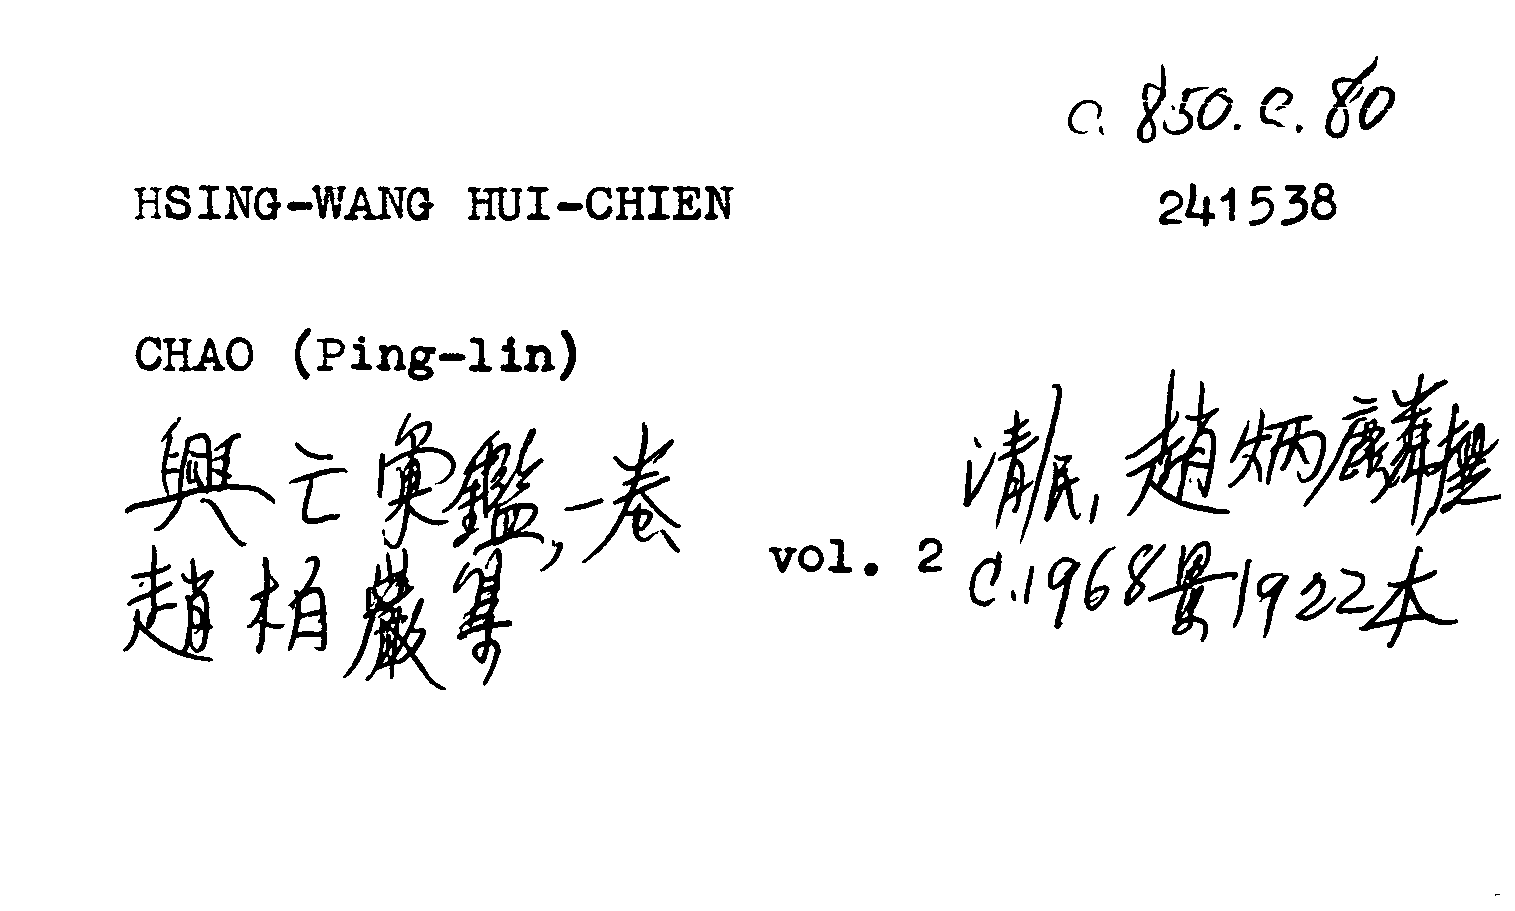 c. 850. c. 80
HSING-WANG HUI-CHIEN 241538
CHAO (Ping-lin)
興亡彙鑑,一卷 清/民, 趙炳麟撰
趙柏巖集 vol. 2 C.1968景1922本